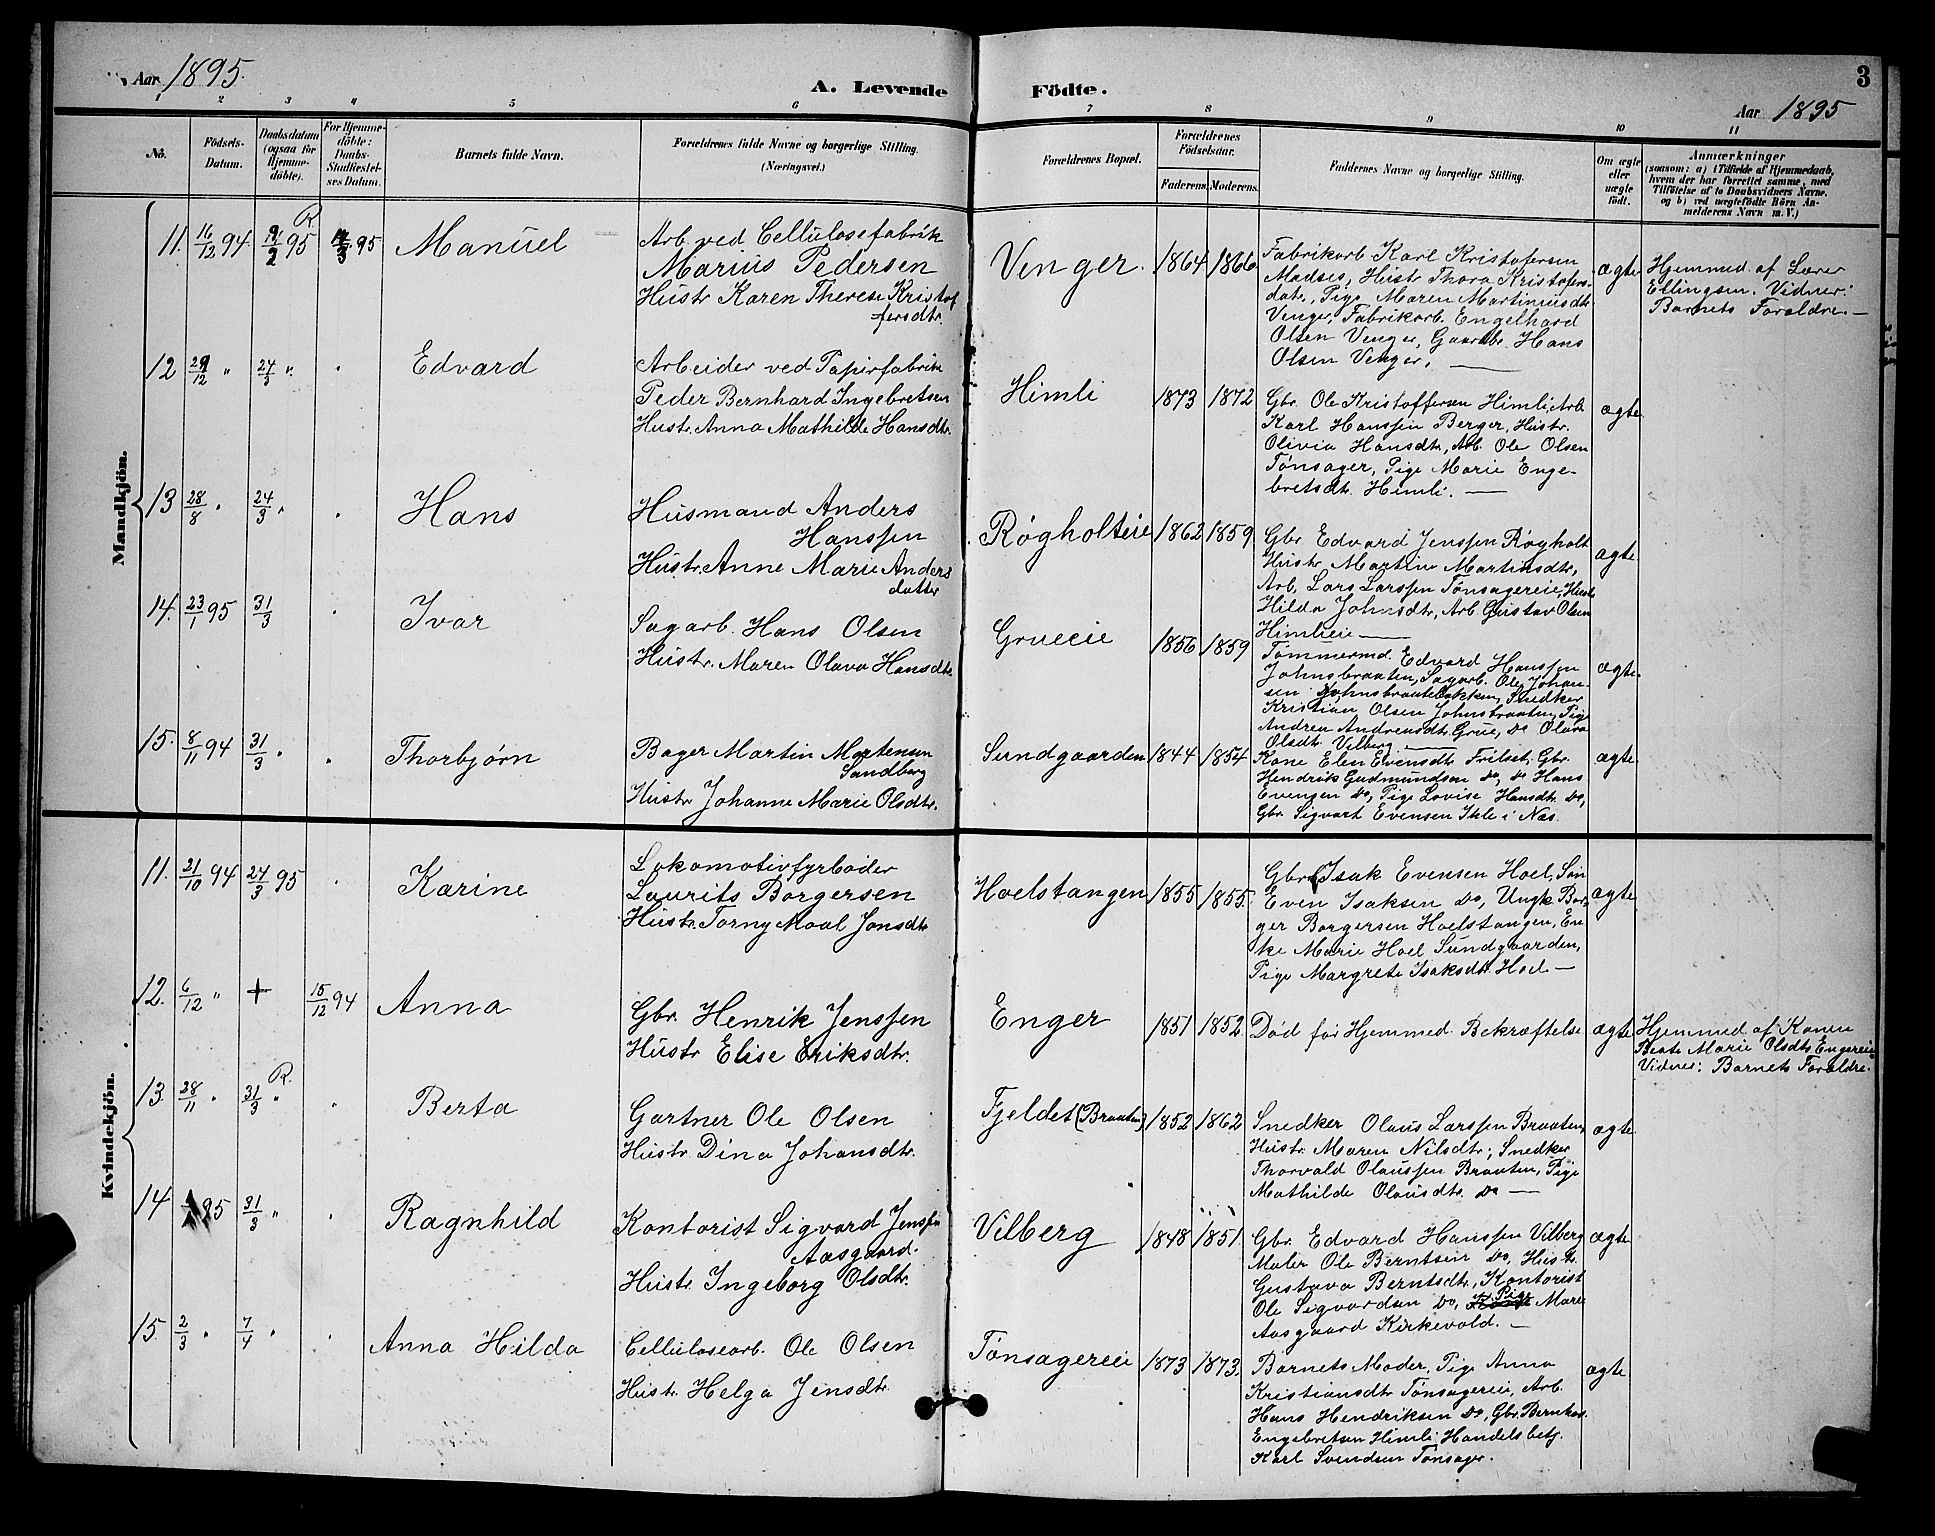 Aar 1895.
A. Levende Födte.
3
Aar 1895
1 2 3 4 5 6 7 8 9 10 11
No.
Födsels-Datum.
Daabsdatum (ogsaa for Hjemme-döbte).
For Hjemme-döbte: Daabs-Stadfæstel-ses Datum.
Barnets fulde Navn.
Forældrenes fulde Navne og borgerlige Stilling.
(Næringsvei.)
Forældrenes Bopæl.
Forældrenes Födselsaar.
Faderens. Moderens.
Faddernes Navne og borgerlige Stilling.
Om ægte eller uægte födt.
Anmærkninger
(saasom: a) i Tilfælde af Hjemmedaab,
hvem der har forrettet samme, med
Tilföielse af to Daabsvidners Navne.
og b) ved uægtefödte Börn An-
melderens Navn m. V.)
Mandkjön.
11. 16/12 94 9/2 95 R 95 Manuel
Arb. ved Cellulosefabrik
Marius Pedersen
Hustr. Karen Therese Kristof
fersdtr.
Venger. 1864 1866
Fabrikarb. Karl Kristofersen
Madses, Hustr. Thora Kristofers-
datr, Pige Maren Martinusdtr
Venger, Fabrikarb. Engelhard
Olsen Venger, Gaardbr. Hans
Olsen Venger.
ægte
Hjemmed. af Lærer
Ellingsen. Vidner:
Barnets Forældre.
12 29/12 " 24/3 " " Edvard
Arbeider ved Papirfabrik
Peder Bernhard Ingebretsen
Hustr. Anna Mathilde Hansdtr.
Himli 1873 1872
Gbr. Ole Kristoffersen Himli, Arb.
Karl Hanssen Berger, Hustr.
Olivia Hansdtr, Arb. Ole Olsen
Tønsager, Pige Marie Enge-
bretsdtr. Himli.
ægte
13 28/8 " 24/3 " " Hans
Husmand Anders
Hanssen
Hustr. Anne Marie Anders
datter
Røgholteie 1862 1859
Gbr. Edvard Jenssen Røgholt
Hustr. Martine Martinsdtr,
Arb. Lars Larssen Tønsagereie, Hustr
Hilda Johnsdtr, Arb. Gustav Olsen
Himlieie
ægte
14. 23/1 95 31/3 " Ivar
Sagarb. Hans Olsen
Hustr. Maren Olava Hansdtr.
Grueeie 1856 1859
Tømmermd. Edvard Hanssen
Johnsbraaten, Sagarb. Ole Johan-
sen Johnsbraatebakken, Snedker
Kristian Olsen Johnsbraaten, Pige
Andrea Andreasdtr. Grue, Do Olava
Olsdtr. Vilberg
ægte.
15. 8/11 94 31/3 " " Thorbjørn
Bager Martin Mortensen
Sandberg
Hustr Johanne Marie Olsdtr.
Sundgaarden 1844 1854
Kone Elen Evensdtr Frilset, Gbr.
Hendrik Gudmundsen Do, Do Hans
Evensen Do, Pige Lovise Hansdtr Do,
Gbr. Sigvart Evensen i Næs.
ægte.
Kvindekjön.
11. 21/10 94 24/3 95 " Karine
Lokomotivfyrbøder
Laurits Borgersen
Hustr. Torny Moal Jonsdtr.
Hoelstangen 1855 1855.
Gbr. Isak Evensen Hoel, Søn
Even Isaksen Do, Ungk. Bor-
ger Borgersen Hoelstangen, En-
ke Marie Hoel Sundgaarden,
Pige Margrete Isaksdtr. Hoel.
ægte
12. 6/12 " + 15/12 94 Anna
Gbr. Henrik Jenssen
Hustr Elise Eriksdtr.
Enger 1851 1852
Død før Hjemmed. Bekræftelse
ægte
Hjemmed. af Konen
Beate Marie Olsdtr. Engereie
Vidner: Barnets Forældre.
13. 28/11 " 31/3 R. " " Berta
Gartner Ole Olsen
Hustr. Dina Johansdtr.
Fjeldet (Braaten) 1852 1862
Snedker Olaus Larssen Braaten,
Hustr. Maren Nilsdtr., Snedker
Thorvald Olaussen Braaten, Pige
Mathilde Olausdtr. Do
ægte.
14 95 31/3 " " Ragnhild
Kontorist Sigvard Jenssen
Aasgaard.
Hustr. Ingeborg Olsdtr.
Vilberg 1848 1851.
Gbr. Edvard Hanssen Vilberg
Maler Ole Berntsen Do, Hustr.
Gustava Berntsdtr., Kontorist
Ole Sigvardsen Do, Pige Maren
Aasgaard Kirkevold.
ægte
15. 2/3 " 7/4 " " Anna Hilda
Cellulosearb. Ole Olsen
Hustr. Helga Jensdtr.
Tønsagereie 1873 1873.
Barnets Moder, Pige Anna
Kristiansdtr Tønsagereie, Arb.
Hans Hendriksen Do, Gbr. Bernhar.
Engebretsen Himli, Handelsbetj.
Karl Svendsen Tønsager.
ægte